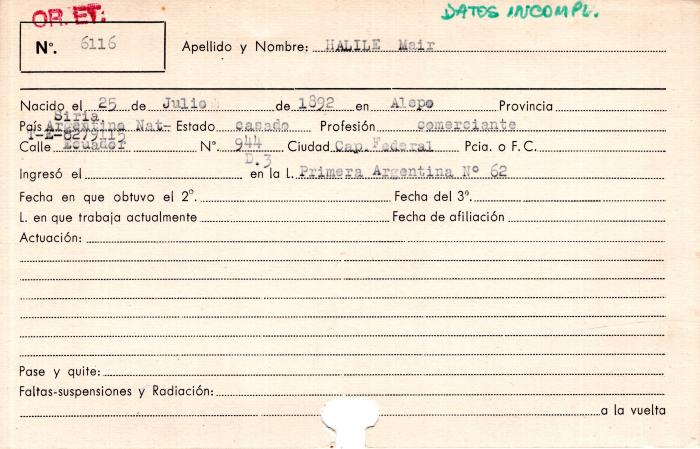 OR. ET.
DATOS INCOMPL.
Nº. 6116
Apellido y Nombre: HALILE Mair
Nacido el 25 de Julio de 1892 en Alepo Provincia
Siria
País Argentina Nat- Estado casado Profesión comerciante
I-E-8279115
Calle Ecuador Nº. 944 Ciudad Cap. Federal Pcia. o F. C.
D.3
Ingresó el en la L. Primera Argentina Nº 62
Fecha en que obtuvo el 2º. Fecha del 3º.
L. en que trabaja actualmente Fecha de afiliación
Actuación:
Pase y quite:
Faltas-suspensiones y Radiación:
a la vuelta